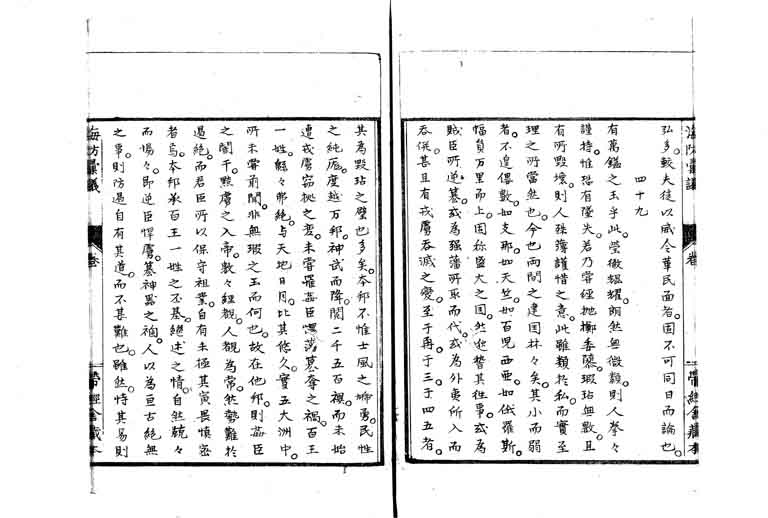 弘多較夫徒以威令華民面者固不可同日而論也
四十九
有萬鎰之玉乎此瑩徹縕耀朗然無微纇則人拳々
謹持惟恐有墜失若乃嘗經抛擲委藤瑕玷無數且
有所毀壞則人殊薄謹惜之意此雖類於私而實至
理之所當然也今也兩間之建国林々矣其小而弱
者不遑僂數如支那如天竺如百児西亜如俄羅斯
幅員万里而上固称盛大之国然迹諬其往事或為
賊臣所逆簒或為强藩所取而代或為外夷所入而
吞從甚且有戎虜吞滅之憂至于再于三于四五者
其為毀玷之壁也多矣本邦不惟士風之 勇民性
之純厖度越万邦神武而降閲二千五百襈而未始
遭戎虜窃 之變未嘗罹姦臣 簒奪之禍百王
一姓緜々弗絶与天地日月比其悠久實五大洲中
所未嘗前聞非無瑕之玉而何也故在他邦則姦臣
之闖干黠虜之入帝數々経覩人覩為常然勢難於
遏絶而君臣所以保守祖業自有未極其寅畏慎密
者焉本邦承百王一姓之丕基継述之情自然兢々
而惕々即逆臣悍虜簒神器之禍人以為亘古絶無
之事則防遏自有其道而不甚難也雖然恃其易則
海防彙議
卷
海防彙議
卷